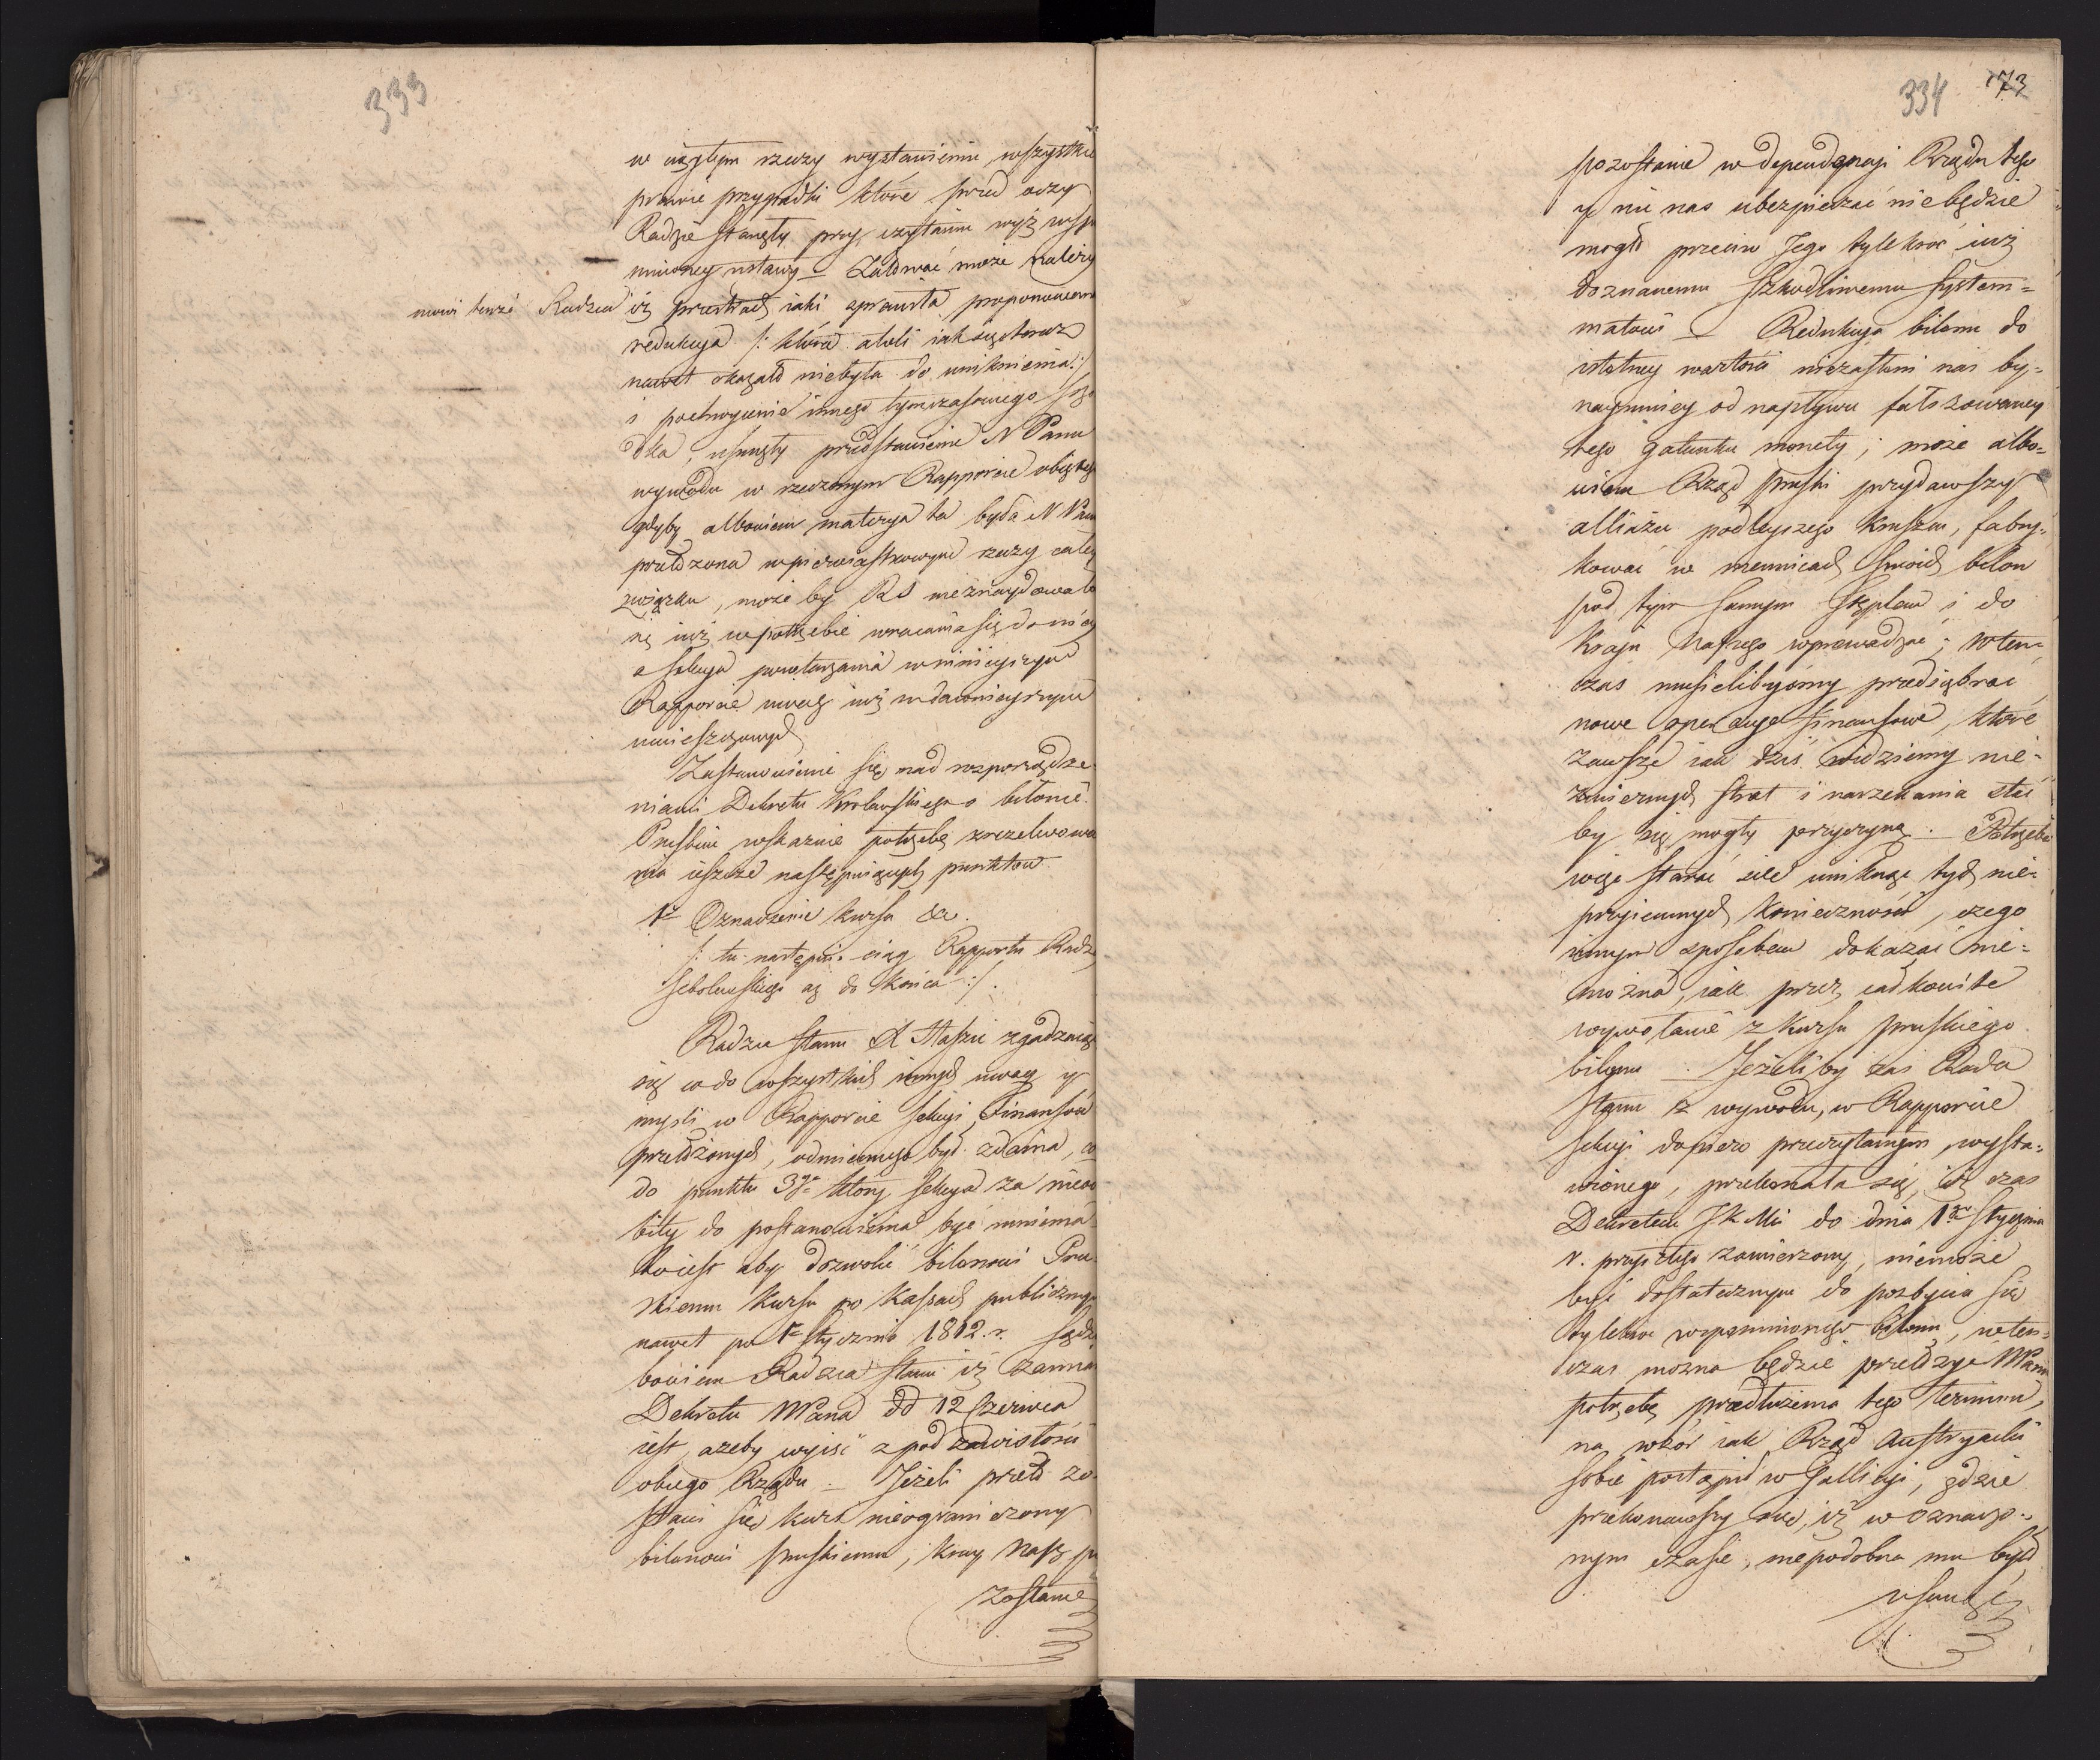 333
w ciągłym rzeczy wystawieniu wszystkie
prawie przypadki które przed oczy
Radzie stanęły przy czytaniu wyż wspo
mnioney ustawy — Żałować może należy
mowi tenże Radzca iż przestrach iaki sprawiła proponowana
redukcya /: która atoli iak się teraz
nawet okazało niebyła do uniknienia :/
i pochwycenie innego tymczasowego
dka, usunęły przedstawienie N Panu
wywodu w rzeczonym Rapporcie obiętego
gdyby albowiem materya ta była N Panu
przełożona w pierwiastkowym rzeczy całey
związku, może by RS nieznaydowała
się iuż w potrzebie wracania się do niey
a Sekcya powtarzania w ninieyszym
Rapporcie uwag iuż w dawnieyszym
umieszczonych
Zastanowienie się nad rozporządze
niami Dekretu Krolewskiego o bilonie
Pruskim wskazuie potrzebę
nia ieszcze następuiących punktow.
1° Oznaczenie kursu &c.
/: tu następuie ciąg Rapportu Radzcy
Sobolewskiego aż do końca :/.
Radzca Stanu X Staszic zgadzaiąc
się co do wszystkich innych uwag y
myśli w Rapporcie Sekcyi Finansów
przełożonych, odmiennego był zdania, co
do punktu 3go który Sekcya za
bity do postanowienia być mniema
to iest aby dozwolić bilonowi Pru
skiemu kursu po Kassach publicznych
nawet po 1° Stycznia 1812. r. Sądzi
bowiem Radzca Stanu iż zamia
Dekretu NPana dd 12 Czerwca
iest, ażeby wyiść z pod zawisłości
obcego Rządu. — Jeżeli przeto zo
stawi się kurs nieograniczony
bilonowi pruskiemu, kray nasz po
zostanie
334 173
pozostanie w dependencyi Rządu tego
y nic nas ubezpieczać niebędzie
mogło przeciw Jego tylekroć iuż
doznanemu szkodliwemu system=
matowi — Redukcya bilonu do
istotney wartości niezasłoni nas by=
naymniey od napływu fałszowaney
tego gatunku monety; może albo=
wiem Rząd pruski przydawszy
alliażu podleyszego kruszcu, fabry=
kować w mennicach swoich bilon
pod tym samym stęplem i do
kraju naszego wprowadzać; w ten=
czas musielibyśmy przedsiębrać
nowe operacye finansowe, które
zawsze iak dziś widziemy nie=
zmiernych strat i narzekania stać
by się mogły przyczyną. — Potrzeba
więc starać się uniknąć tych nie=
przyiemnych konieczności, czego
innym sposobem dokazać nie=
można, iak przez całkowite
wywołanie z kursu pruskiego
bilonu —. Jeżeliby zaś Rada
Stanu z wywodu, w Rapporcie
Sekcyi dopiero przeczytanym, wysta=
wionego, przekonała się, iż czas
Dekretem JK Mci do dnia 1go Stycznia
r. przyszłego zamierzony, niemoże
być dostatecznym do pozbycia się
tylekroć wspomnionego bilonu, w ten=
czas można będzie przełożyć NPanu
potrzebę przedłużenia tego terminu,
na wzór iak Rząd Austryacki
sobie postąpił w Gallicyi, gdzie
przekonawszy się, iż w oznaczo=
nym czasie, niepodobna mu było
usunąć